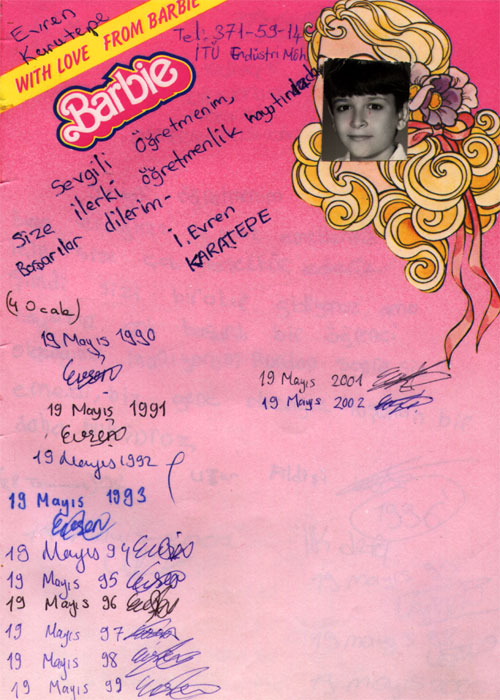 Evren
Karatepe
Tel: 371-59-14
İTÜ Endüstri Müh
WITH LOVE FROM BARBIE
Barbie
Sevgili Öğretmenim,
Size ilerki öğretmenlik hayatında
Başarılar dilerim-
İ. Evren
KARATEPE
(4 Ocak)
19 Mayıs 1990
Evren
19 Mayıs 1991
Evren
19 Mayıs 1992
19 Mayıs 1993
Evren
19 Mayıs 94 Evren
19 Mayıs 95
19 Mayıs 96
19 Mayıs 97
19 Mayıs 98
19 Mayıs 99
19 Mayıs 2001
19 Mayıs 2002